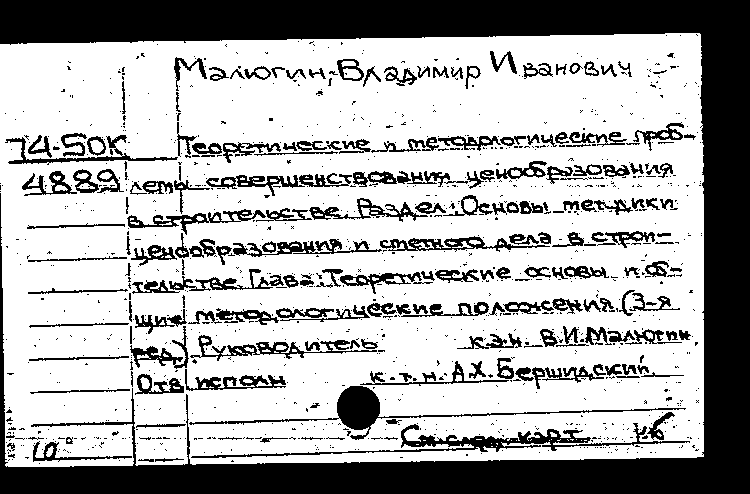 Малюгин, Владимир Иванович
74-50К Теоретические и методологические проб-
4889 лемы совершенствования ценообразования
в строительстве. Раздел: Основы методики
ценообразования и сметного дела в строи-
тельстве. Глава: Теоретические основы и об-
щие методологические положения. (3-я
ред.). Руководитель к.э.н. В.И. Малюгин.
Отв. исполн к.т.н. А.Х. Бершидский.
См. след. карт.
10